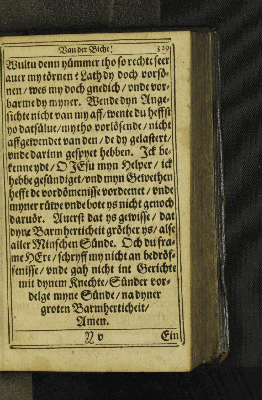 Van der Bicht. 329
Wultu denn yümmer tho so rechte seer
auer my törnen? Lath dy doch vorsö-
nen / wes my doch gnedich / vnde vor-
barme dy myner. Wende dyn Ange-
sichte nicht van my aff / wente du heffst
yo datsülue / my tho vorlösende / nicht
affgewendet van den / de dy gelastert /
vnde darinn gespyet hebben. Ick be-
kenne ydt / O JEsu myn Helper / ick
hebbe gesündiget / vnd myn Gewethen
hefft de vordömenisse vordenet / vnde
myner rüwe vnde bote ys nicht genoch
daruör. Auerst dat ys gewisse / dat
dyne Barmherticheit gröther ys / alse
aller Minschen Sünde. Och du fra-
me HEre / schryff my nicht an bedröf-
fenisse / vnde gah nicht int Gerichte
mit dynem Knechte / Sünder vor-
delge myne Sünde / na dyner
groten Barmherticheit /
Amen.
v Ein